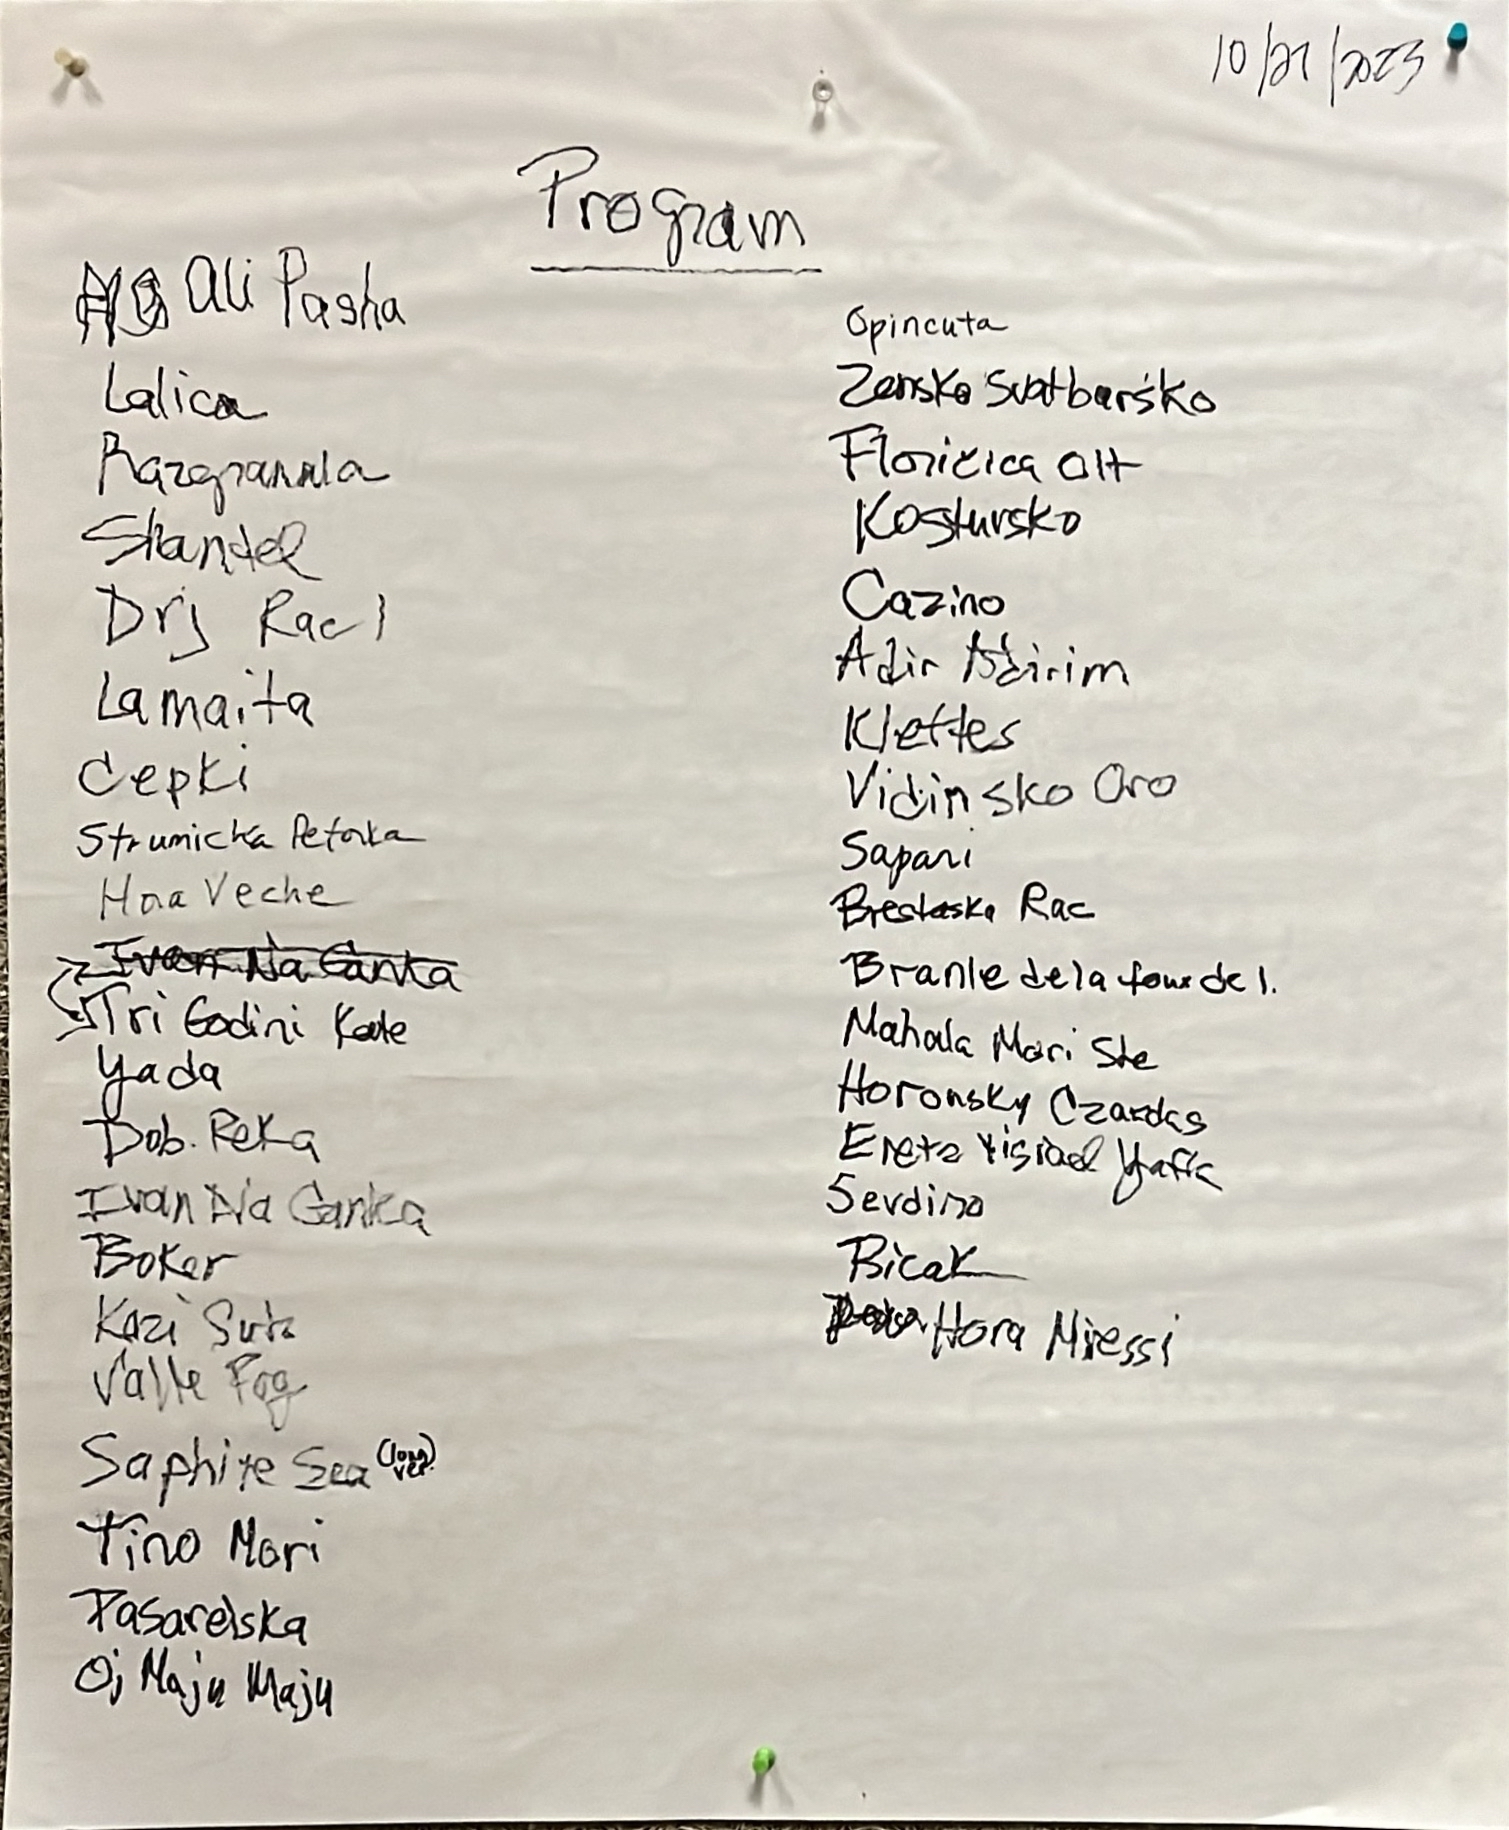 10/21/2023
Program
Ali Pasha
Lalica
Razgranala
Skandel
Drj Rac 1
Lamaita
Cepki
Strumicka Petorka
Hora Veche
Ivan Na Ganka
Tri Godini Kate
Yada
Dob. Reka
Ivan Na Ganka
Boker
Kozi
Valle Pog
Saphire Sea (long ver.)
Tino Mori
Pasarelska
Oj Maju Maju
Opincuta
Zensko Svatbarsko
Floricica Olt
Kostursko
Cazino
Adir Adirim
Klettes
Vidinsko Oro
Sapari
Brestaska Rac
Branle de la four de l.
Mahala Mori Ste
Horonsky Czardas
Eretz Yisrael Yafa
Sevdino
Bicak
Hora Miresii